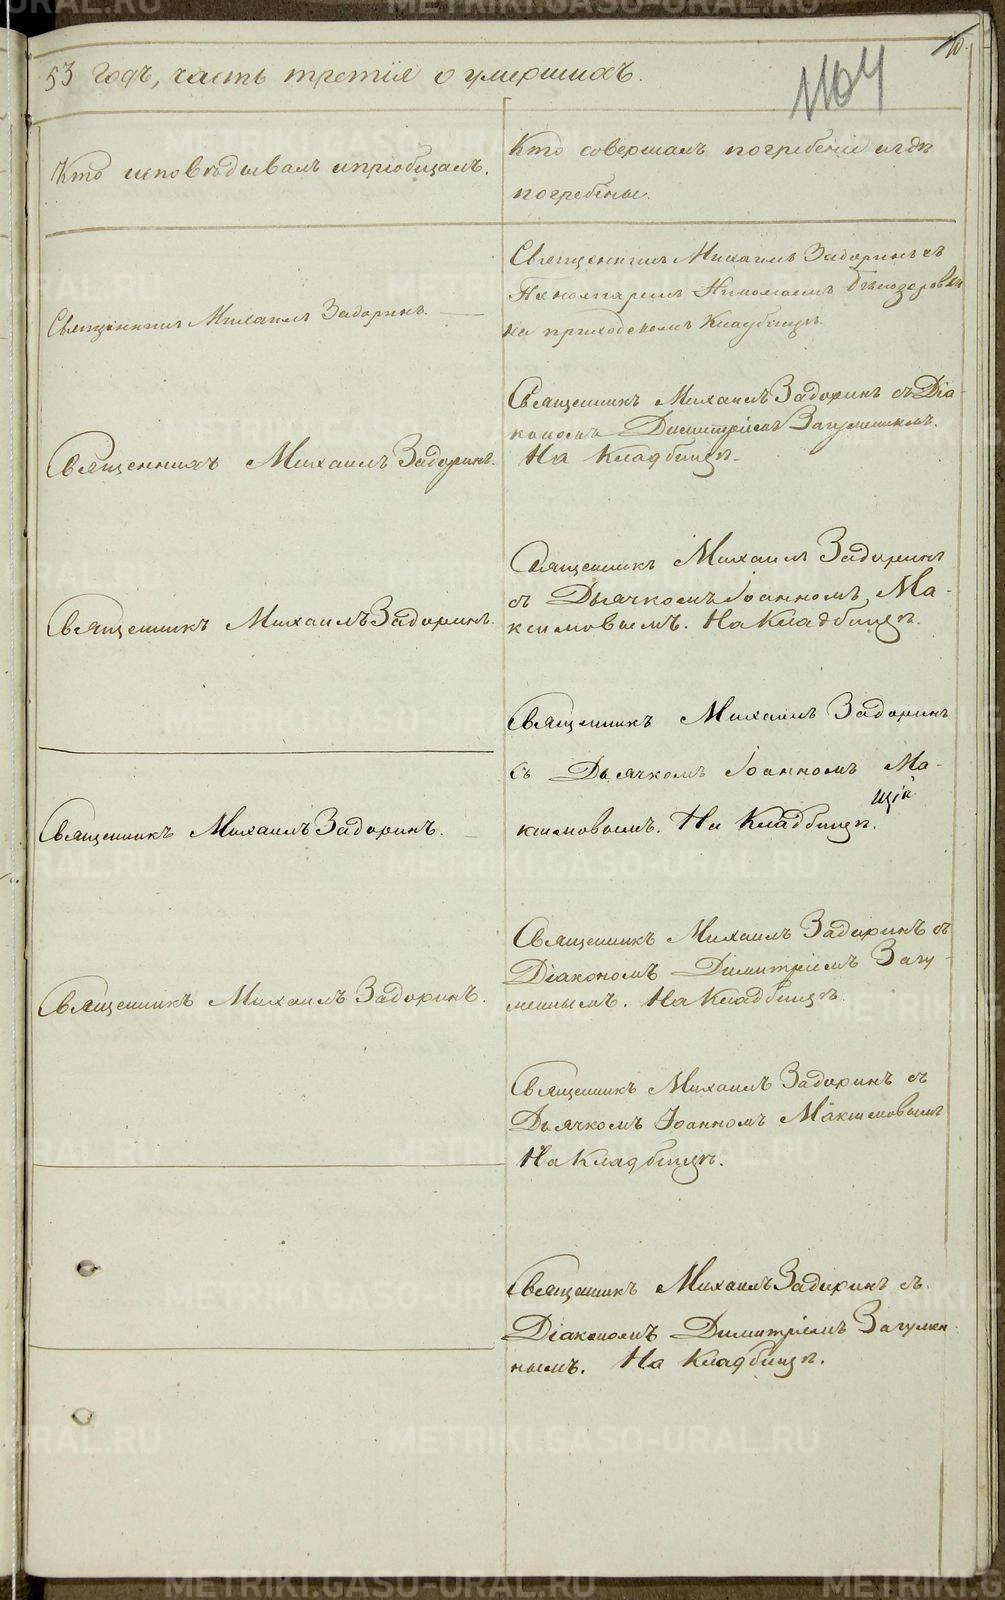 53 годъ, часть третія о умершихъ.
1104
10.
Кто исповѣдывалъ и пріобщалъ.
Кто совершалъ погребеніе и гдѣ
погребены.
Священникъ Михаилъ Задоринъ.
Священникъ Михаилъ Задоринъ съ
Пономаремъ Николаемъ Бѣлозеровымъ
на приходскомъ Кладбищѣ.
Священникъ Михаилъ Задоринъ.
Священникъ Михаилъ Задоринъ съ Діа-
кономъ Димитріемъ Загуменнымъ.
На Кладбищѣ.
Священникъ Михаилъ Задоринъ.
Священникъ Михаилъ Задоринъ
съ Дьячкомъ Іоанномъ Ма-
ксимовымъ. На Кладбищѣ.
Священникъ Михаилъ Задоринъ.
Священникъ Михаилъ Задоринъ
съ Дьячкомъ Іоанномъ Ма-
ксимовымъ. На Кладбищѣ.
Священникъ Михаилъ Задоринъ.
Священникъ Михаилъ Задоринъ съ
Діакономъ Димитріемъ Загу-
меннымъ. На Кладбищѣ.
Священникъ Михаилъ Задоринъ съ
Дьячкомъ Іоанномъ Максимовымъ
На Кладбищѣ.
Священникъ Михаилъ Задоринъ съ
Діакономъ Димитріемъ Загумен-
нымъ. На Кладбищѣ.
METRIKI.GASO-URAL.RU